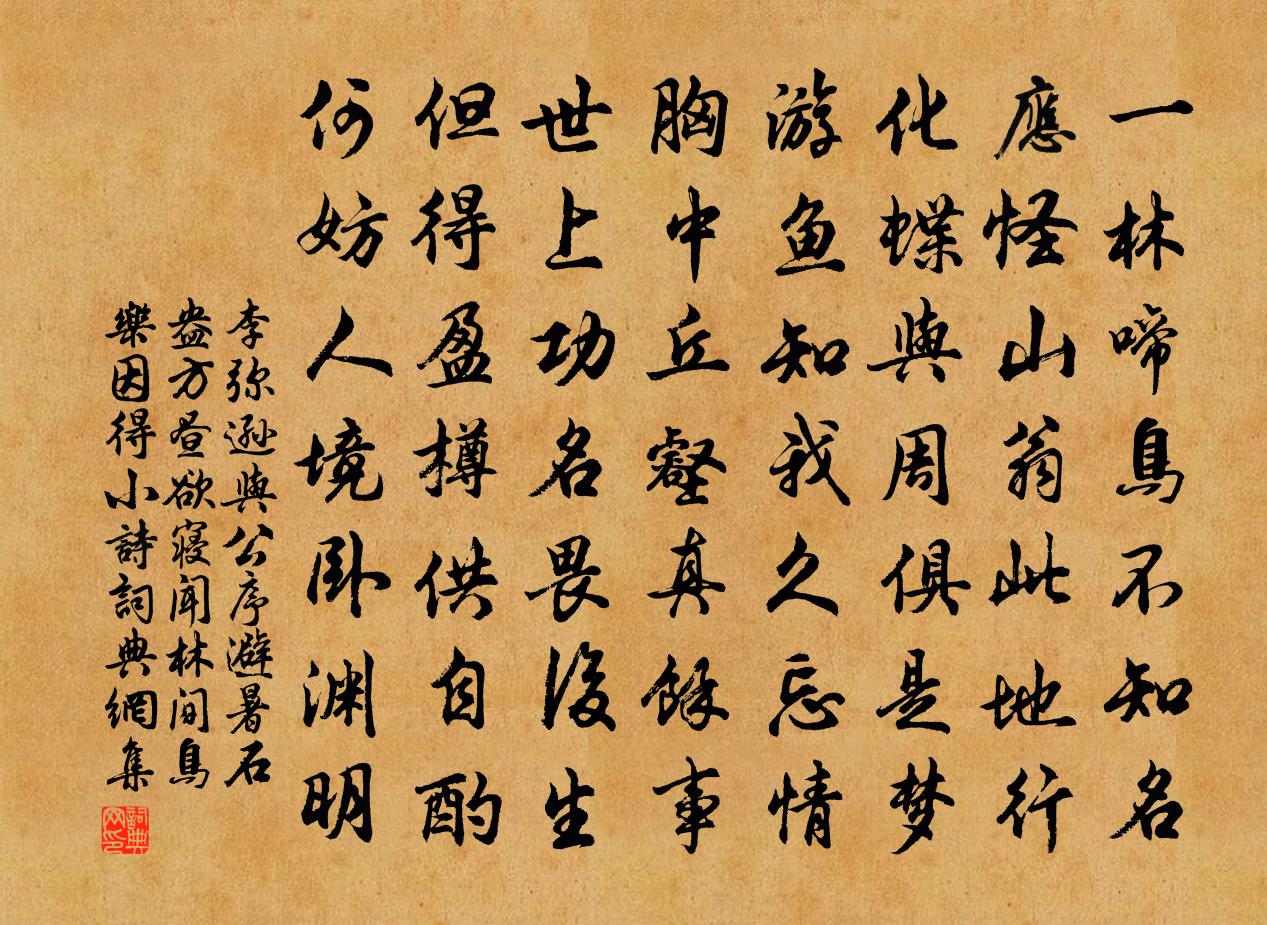 一林啼鳥不知名
應怪山翁此地行
化蝶與周俱是梦
游鱼知我久忘情
胸中丘壑真餘事
世上功名畏後生
但得盈樽供自酌
何妨人境卧渊明
李弥遜與公序避暑石
盎方昼欲寝闻林间鳥
樂因得小詩詞典網集
詞典网印